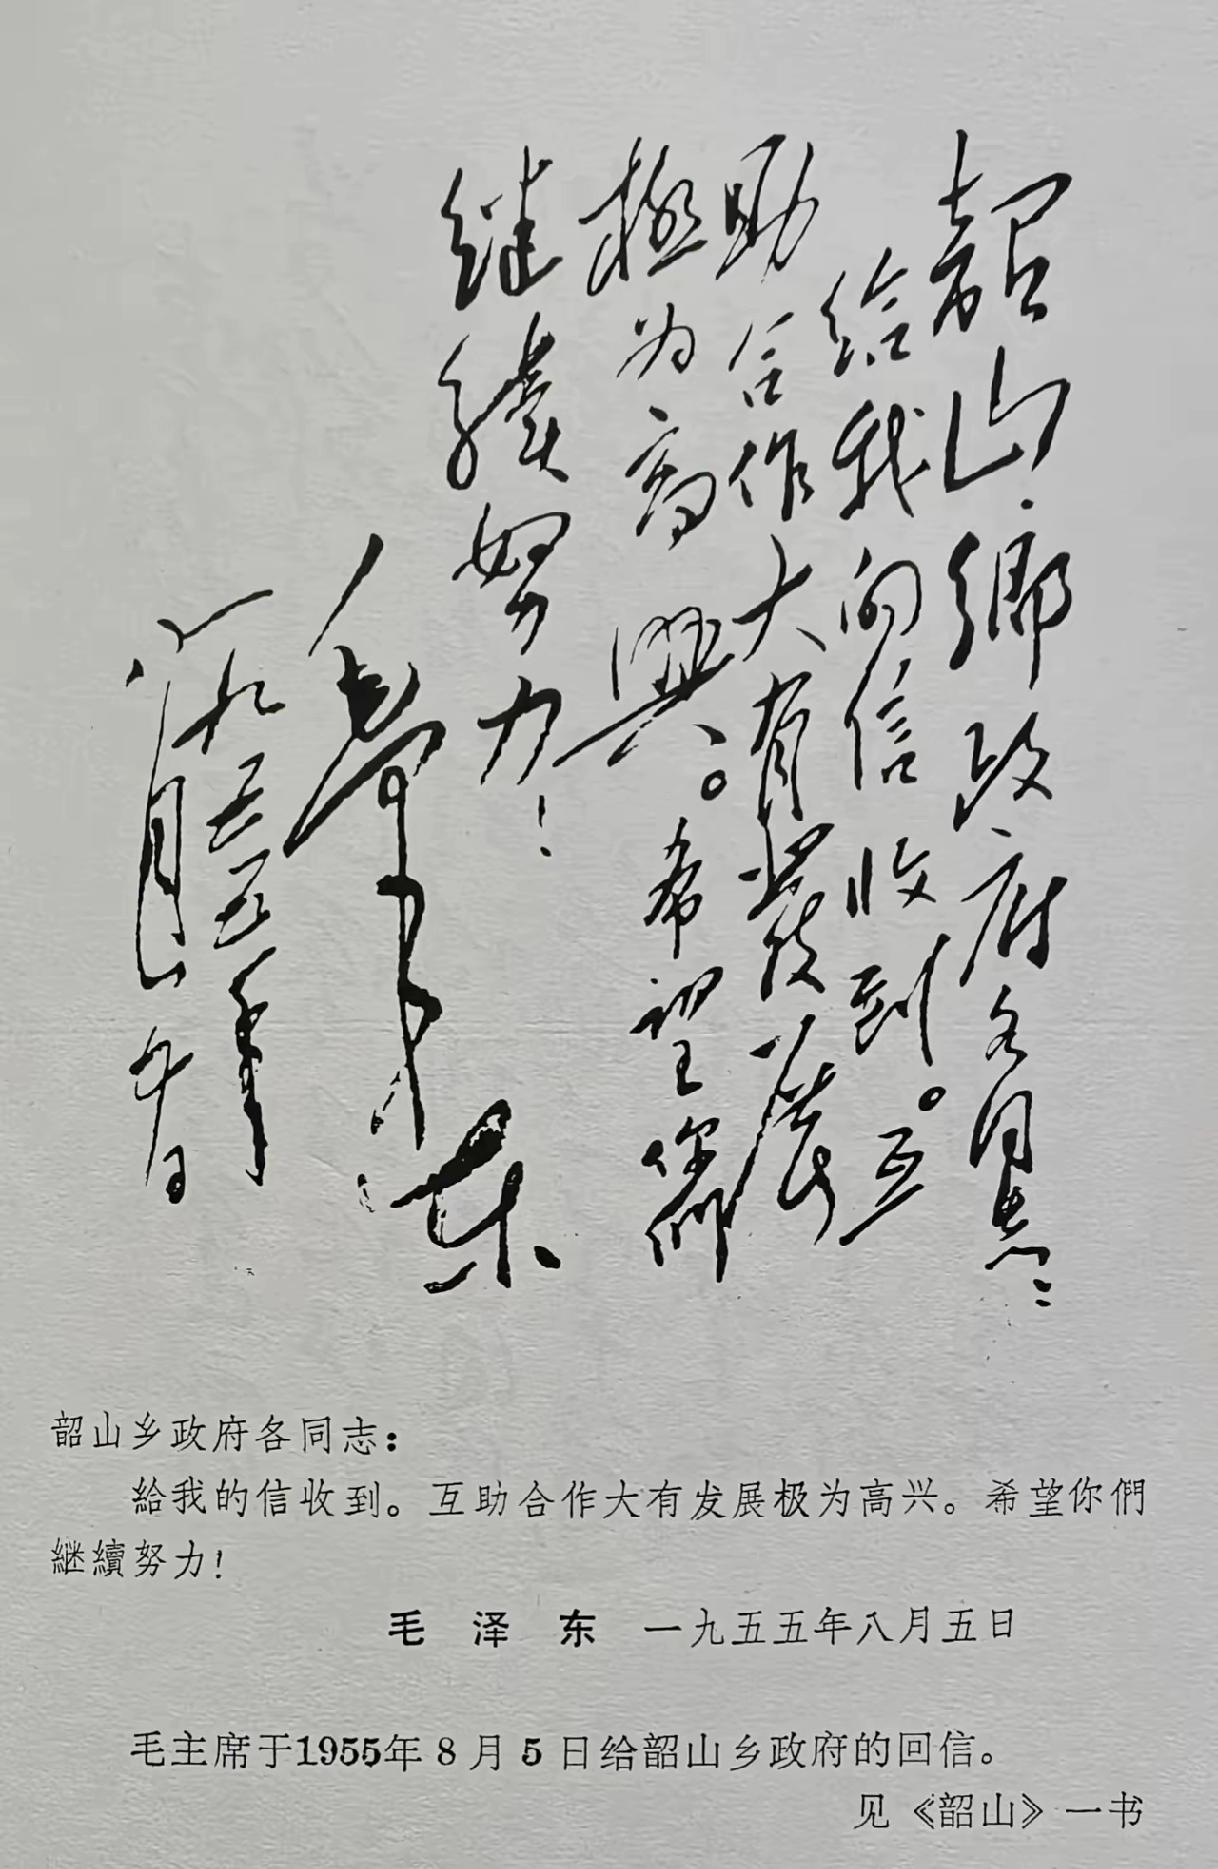 韶山鄉政府各同志：
给我的信收到。互
助合作大有發展
極为高興。希望你們
继續努力！
毛澤东
一九五五年
八月五日
韶山乡政府各同志：
給我的信收到。互助合作大有发展极为高兴。希望你們
継續努力！
毛 泽 东 一九五五年八月五日
毛主席于1955年8月5日给韶山乡政府的回信。
见《韶山》一书